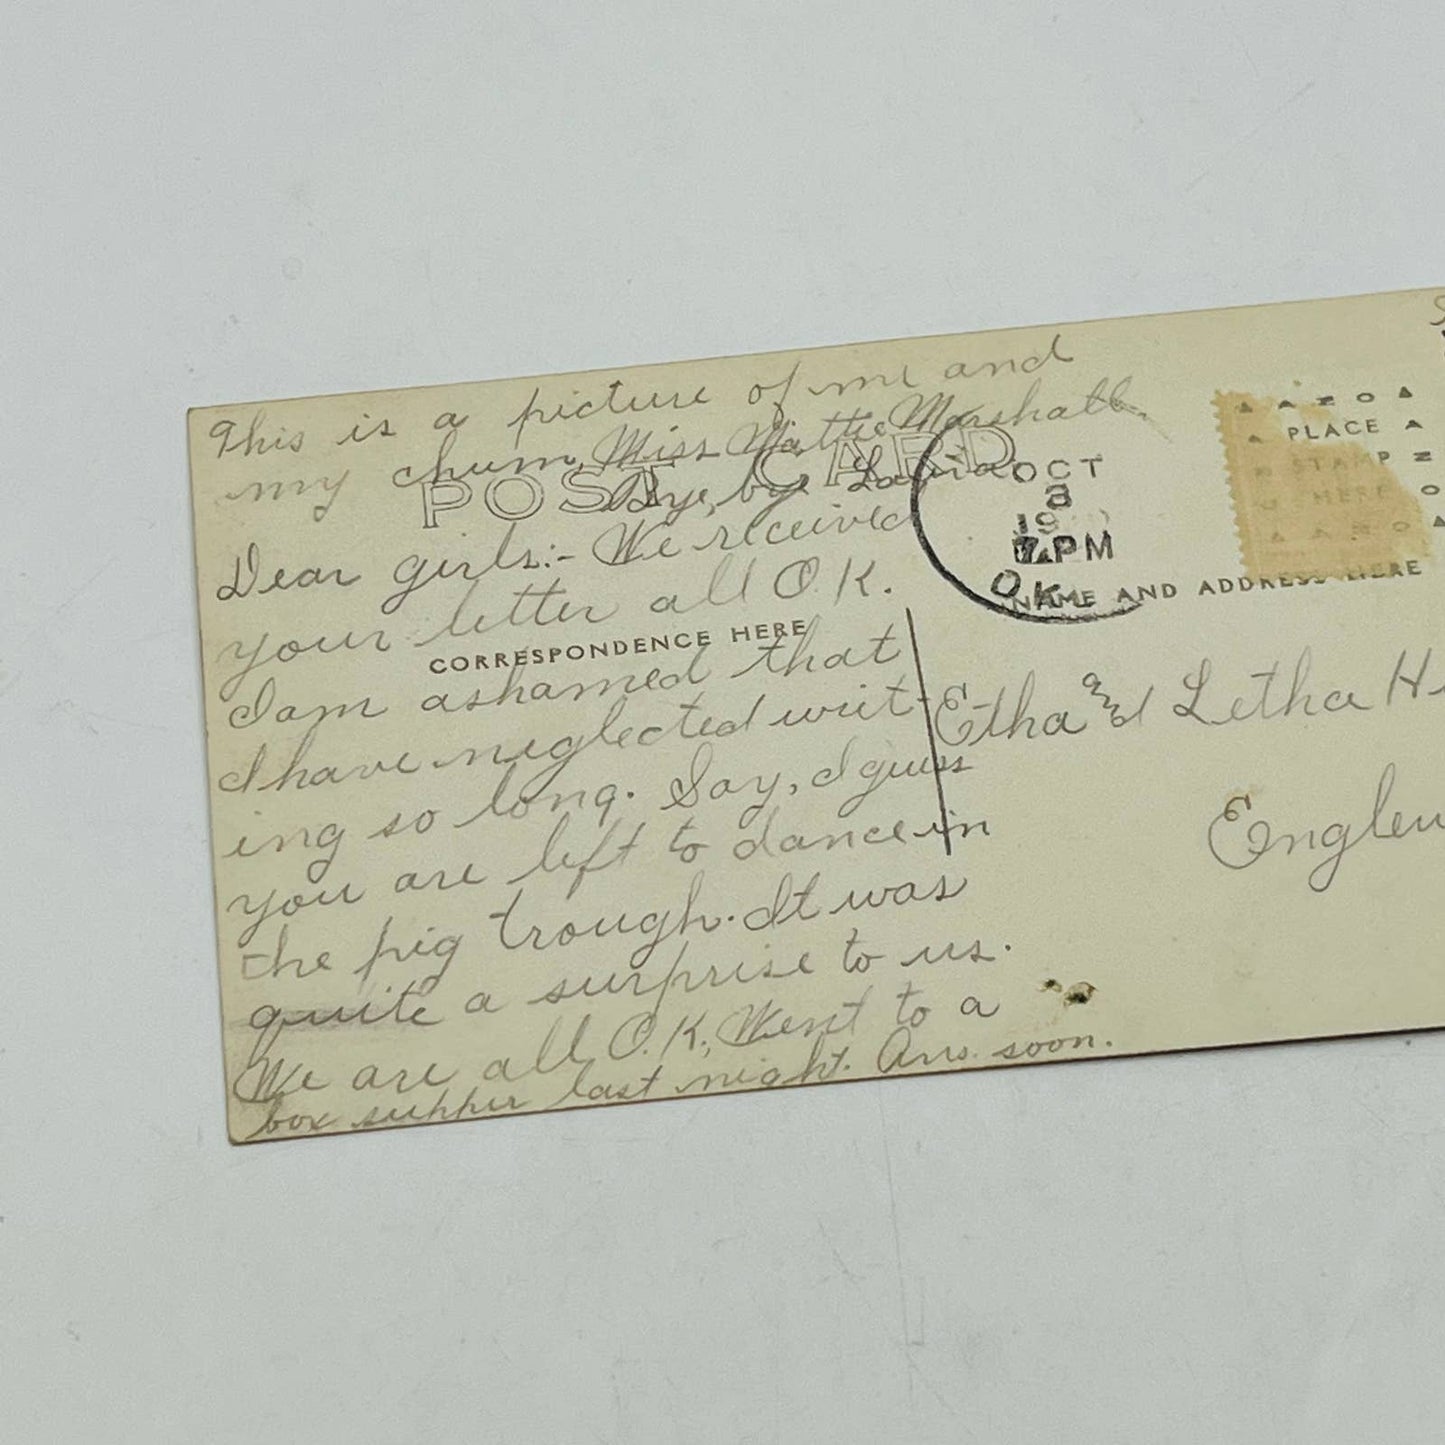 This is a picture of me and
my chum, Miss Mattie Marshall.
Bye, bye
POST CARD
Dear girls:- We received
your letter all O.K.
CORRESPONDENCE HERE
I am ashamed that
I have neglected writ-
ing so long. Say, I guess
you are left to dance in
the pig trough. It was
quite a surprise to us.
We are all O.K., Went to a
box supper last night. Ans. soon.
OCT
19
PM
OK
PLACE
STAMP
HERE
NAME AND ADDRESS HERE
Etha and Letha H
Englew